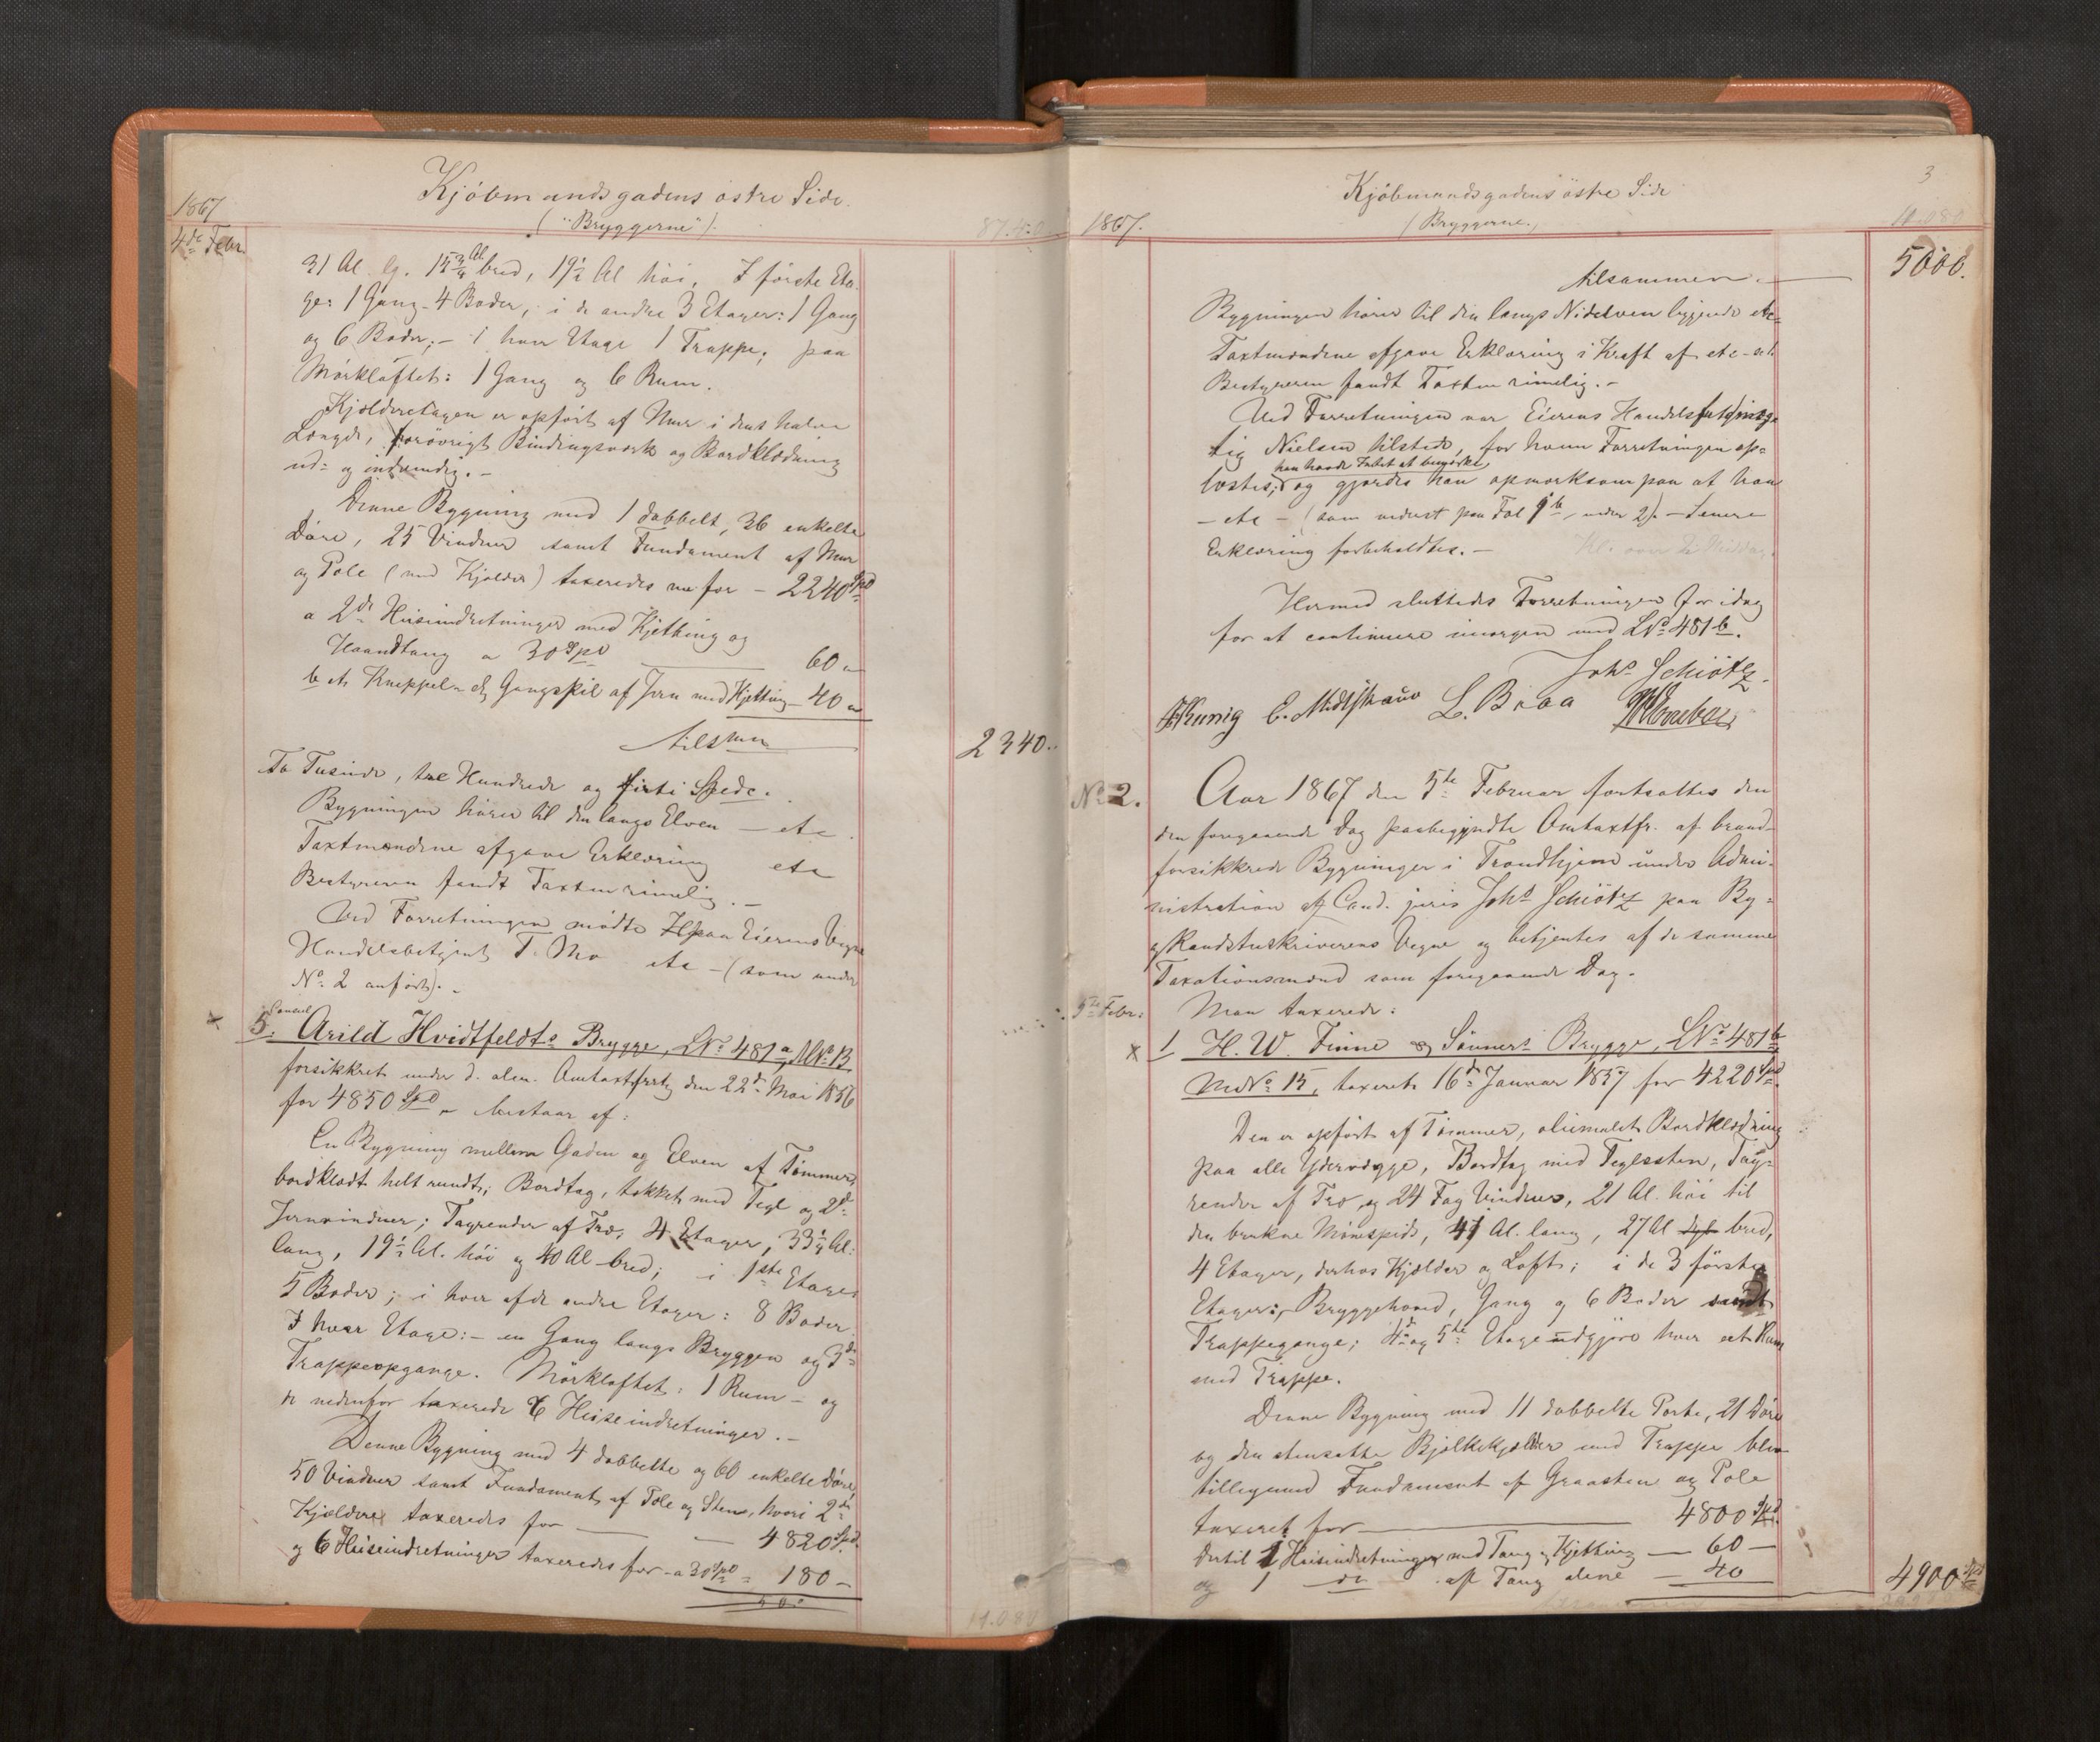 Kjöbmandsgadens östre Side.
("Bryggerne").
1867
4de Febr.
31 Al. lg. 15 3/4 Al bred, 19 1/2 Al höi, I förste Eta-
ge: 1 Gang - 4 Boder, i de andre 3 Etager: 1 Gang
og 6 Boder; - i hver Etage 1 Trappe; paa
Mörkloftet: 1 Gang og 6 Rum.
Kjælderetagen er opfört af Muur i dens halve
Længde, forövrigt Bindingsværk og Bordklædning
ud- og indvendig. -
Denne Bygning med 1 dobbelt, 36 enkelte
Döre, 25 Vinduer samt Fundament af Muur
og Pæle (med Kjelder) taxeredes nu for - 2240 Spd
a 2de Heiseindretninger med Kjetting og
Haandtaug a 30 Spd 60 "
b et Knippel- og Gangspil af Jern med Kjetting - 40 "
tilsmn 2340..
To Tusinde, tre Hundrede og firti Spedr.
Bygningen hörer til den langs Elven - etc.
Taxtmændene afgave Erklæring etc
Bestyreren fandt Taxten rimelig. -
Ved Forretningen mödte paa Eierens Vegne
Handelsbetjent T. Mo etc - (som under
No. 2 anfört). -
x 5. Consul Arild Hvidtfeldts Brygge, LNo 481a, MNo 13
forsikkret under d. alm. Omtaxtfrtg den 22de Mai 1856
for 4850 Spd - bestaar af:
En Bygning mellem Gaden og Elven af Tömmer,
bordklædt helt rundt; Bordtag, tækket med Tegl og 2de
Jernvinduer; Tagrender af Træ, 4 Etager, 33 1/4 Al:
lang, 19 1/2 Al. höi og 40 Al bred; i 1ste Etage
5 Boder; i hver af de andre Etager: 8 Boder
I hver Etage: - en Gang langs Bryggen og 3de
Trappeopgange. Mörkloftet: 1 Rum - og
nedenfor taxerede 6 Heiseindretninger. -
Denne Bygning med 4 dobbelte og 60 enkelte Döre,
50 Vinduer samt Fundament af Pæle og Sten, hvori 2de
Kjældere taxeredes for - 4820 Spd.
og 6 Heiseindretninger taxeredes for - a 30 Spd = 180 -
11.080
Kjöbmandsgadens östre Side
(Bryggerne.)
3
1867.
tilsammen. 5000.
Bygningen hörer til den langs Nidelven liggende etc-
Taxtmændene afgave Erklæring i Kraft af etc - etc
Bestyreren fandt Taxten rimelig. -
Ved Forretningen var Eierens Handelsfuldmæg-
tig Nielsen tilstede, for hvem Forretningen op-
læstes; han havde Intet at bemærke, og gjordes han opmærksom paa at han
- etc - (som nederst paa Fol 1b, under 2). - Senere
Erklæring forbeholdtes. -
Hermed sluttedes Forretningen for idag
for at continuere imorgen med LNo 481b.
Johs Schiötz.
L. Braa
No 2. Aar 1867 den 5te Februar fortsattes den
den foregaaende Dag paabegyndte Omtaxtfr. af brand-
forsikkrede Bygninger i Trondhjem under Admi-
nistration af Cand. juris Johs Schiötz paa By-
og Raadstueskriverens Vegne og betjentes af de samme
Taxationsmænd som foregaaende Dag.
5te Febr: Man taxerede:
x 1 H. W. Finne & Sönners Brygge, LNo 481b
MNo 15, taxeret 16de Januar 1857 for 4220 Spd.
Den er opfört af Tömmer, oliemalet Bordklædning
paa alle Ydervægge, Bordtag med Teglsten, Tag-
render af Træ, og 24 Fag Vinduer, 21 Al. höi til
den brukne Mönespids, 41 Al. lang, 27 Al dyb bred,
4 Etager, derhos Kjælder og Loft; i de 3 förste
Etager: Bryggehoved, Gang og 6 Boder samt
Trappegange; 4de og 5te Etage udgjöre hver eet Rum
med Trappe.
Denne Bygning med 11 dobbelte Porte, 21 Döre
og den stensatte Bjælkekjælder med Trappe blev
tilligemed Fundament af Graasten og Pæle
taxeret for 4800 Spd.
dertil 2 Heiseindretninger med Taug og Kjetting - 60 -
og 1 do af Taug alene - 40
4900 Spd